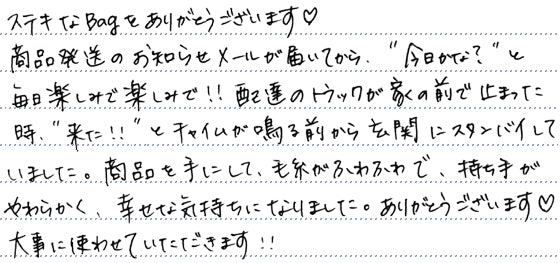 ステキなBagをありがとうございます♡
商品発送のお知らせメールが届いてから、“今日かな？”と
毎日楽しみで楽しみで!! 配達のトラックが家の前で止まった
時、“来た!!”とチャイムが鳴る前から玄関にスタンバイして
いました。商品を手にして、毛糸がふわふわで、持ち手が
やわらかく、幸せな気持ちになりました。ありがとうございます♡
大事に使わせていただきます!!